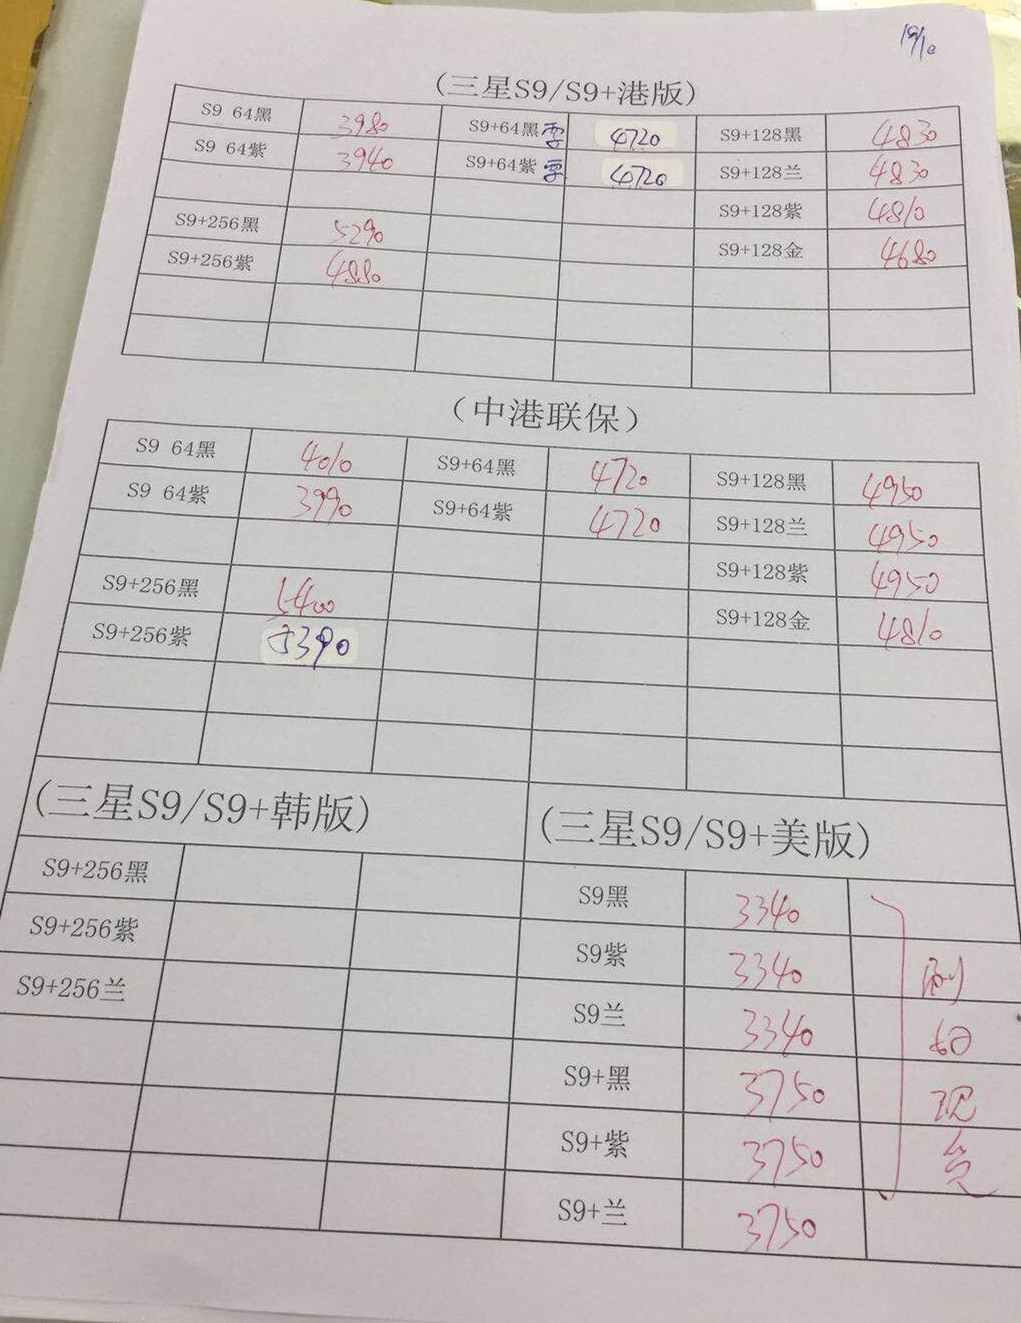 19/10
(三星S9/S9+港版)
S9 64黑 3980 S9+64黑零 4720 S9+128黑 4830
S9 64紫 3940 S9+64紫零 4720 S9+128兰 4830
S9+128紫 4810
S9+256黑 5290 S9+128金 4680
S9+256紫 4880
（中港联保）
S9 64黑 4010 S9+64黑 4720 S9+128黑 4950
S9 64紫 3990 S9+64紫 4720 S9+128兰 4950
S9+128紫 4950
S9+256黑 5400 S9+128金 4810
S9+256紫 5390
(三星S9/S9+韩版) (三星S9/S9+美版)
S9+256黑 S9黑 3340
S9+256紫 S9紫 3340
S9+256兰 S9兰 3340
S9+黑 3750
S9+紫 3750
S9+兰 3750
刷
现